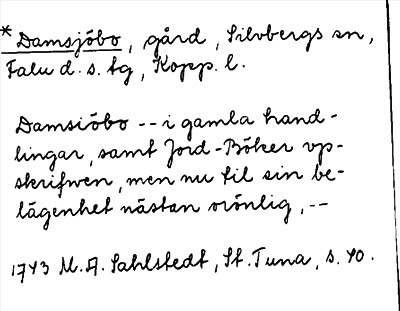 * Damsjöbo, gård, Silvbergs sn,
Falu d. s. fg, Kopp. l.
Damsiöbo -- i gamla hand-
lingar, samt Jord-Böker vp-
skrifwen, men nu til sin be-
lägenhet nästan orönlig, --
1743 M. A. Sahlstedt, St. Tuna, s. 40.